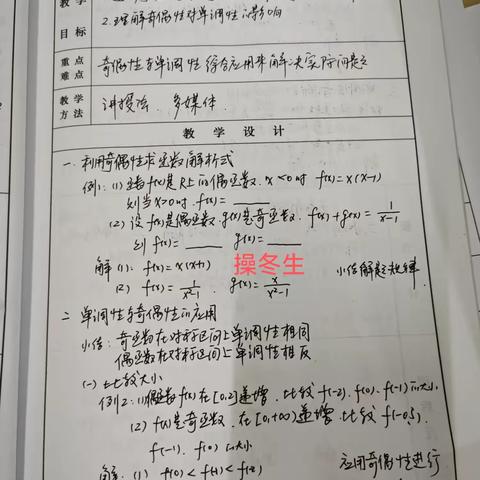 教学
目标
2.理解奇偶性对单调性的影响
重点
难点
奇偶性与单调性综合应用来解决实际问题
教学
方法
讲授法、多媒体
教 学 设 计
一、利用奇偶性求函数解析式
例1: (1) 函数f(x)是R上的偶函数, x<0时 f(x)=x(x-1)
则当x>0时, f(x)=____
(2) 设f(x)是偶函数, g(x)是奇函数, f(x)+g(x)=1/(x-1)
则 f(x)=____ g(x)=____
解 (1). f(x)=x(x+1)
操冬生
小结解题规律
(2) f(x)=1/(x²-1) . g(x)=x/(x²-1)
二 单调性与奇偶性的应用
小结: 奇函数在对称区间上单调性相同
偶函数在对称区间上单调性相反
(一) 比较大小
例2: (1) 偶函数f(x)在[0,2]递增, 比较f(-2), f(0), f(-1)的大小
(2) f(x)是奇函数, 在[0,+∞)递增, 比较f(-0.5),
f(-1), f(0)的大小
解: (1) f(0)<f(-1)<f(2)
应用奇偶性进行